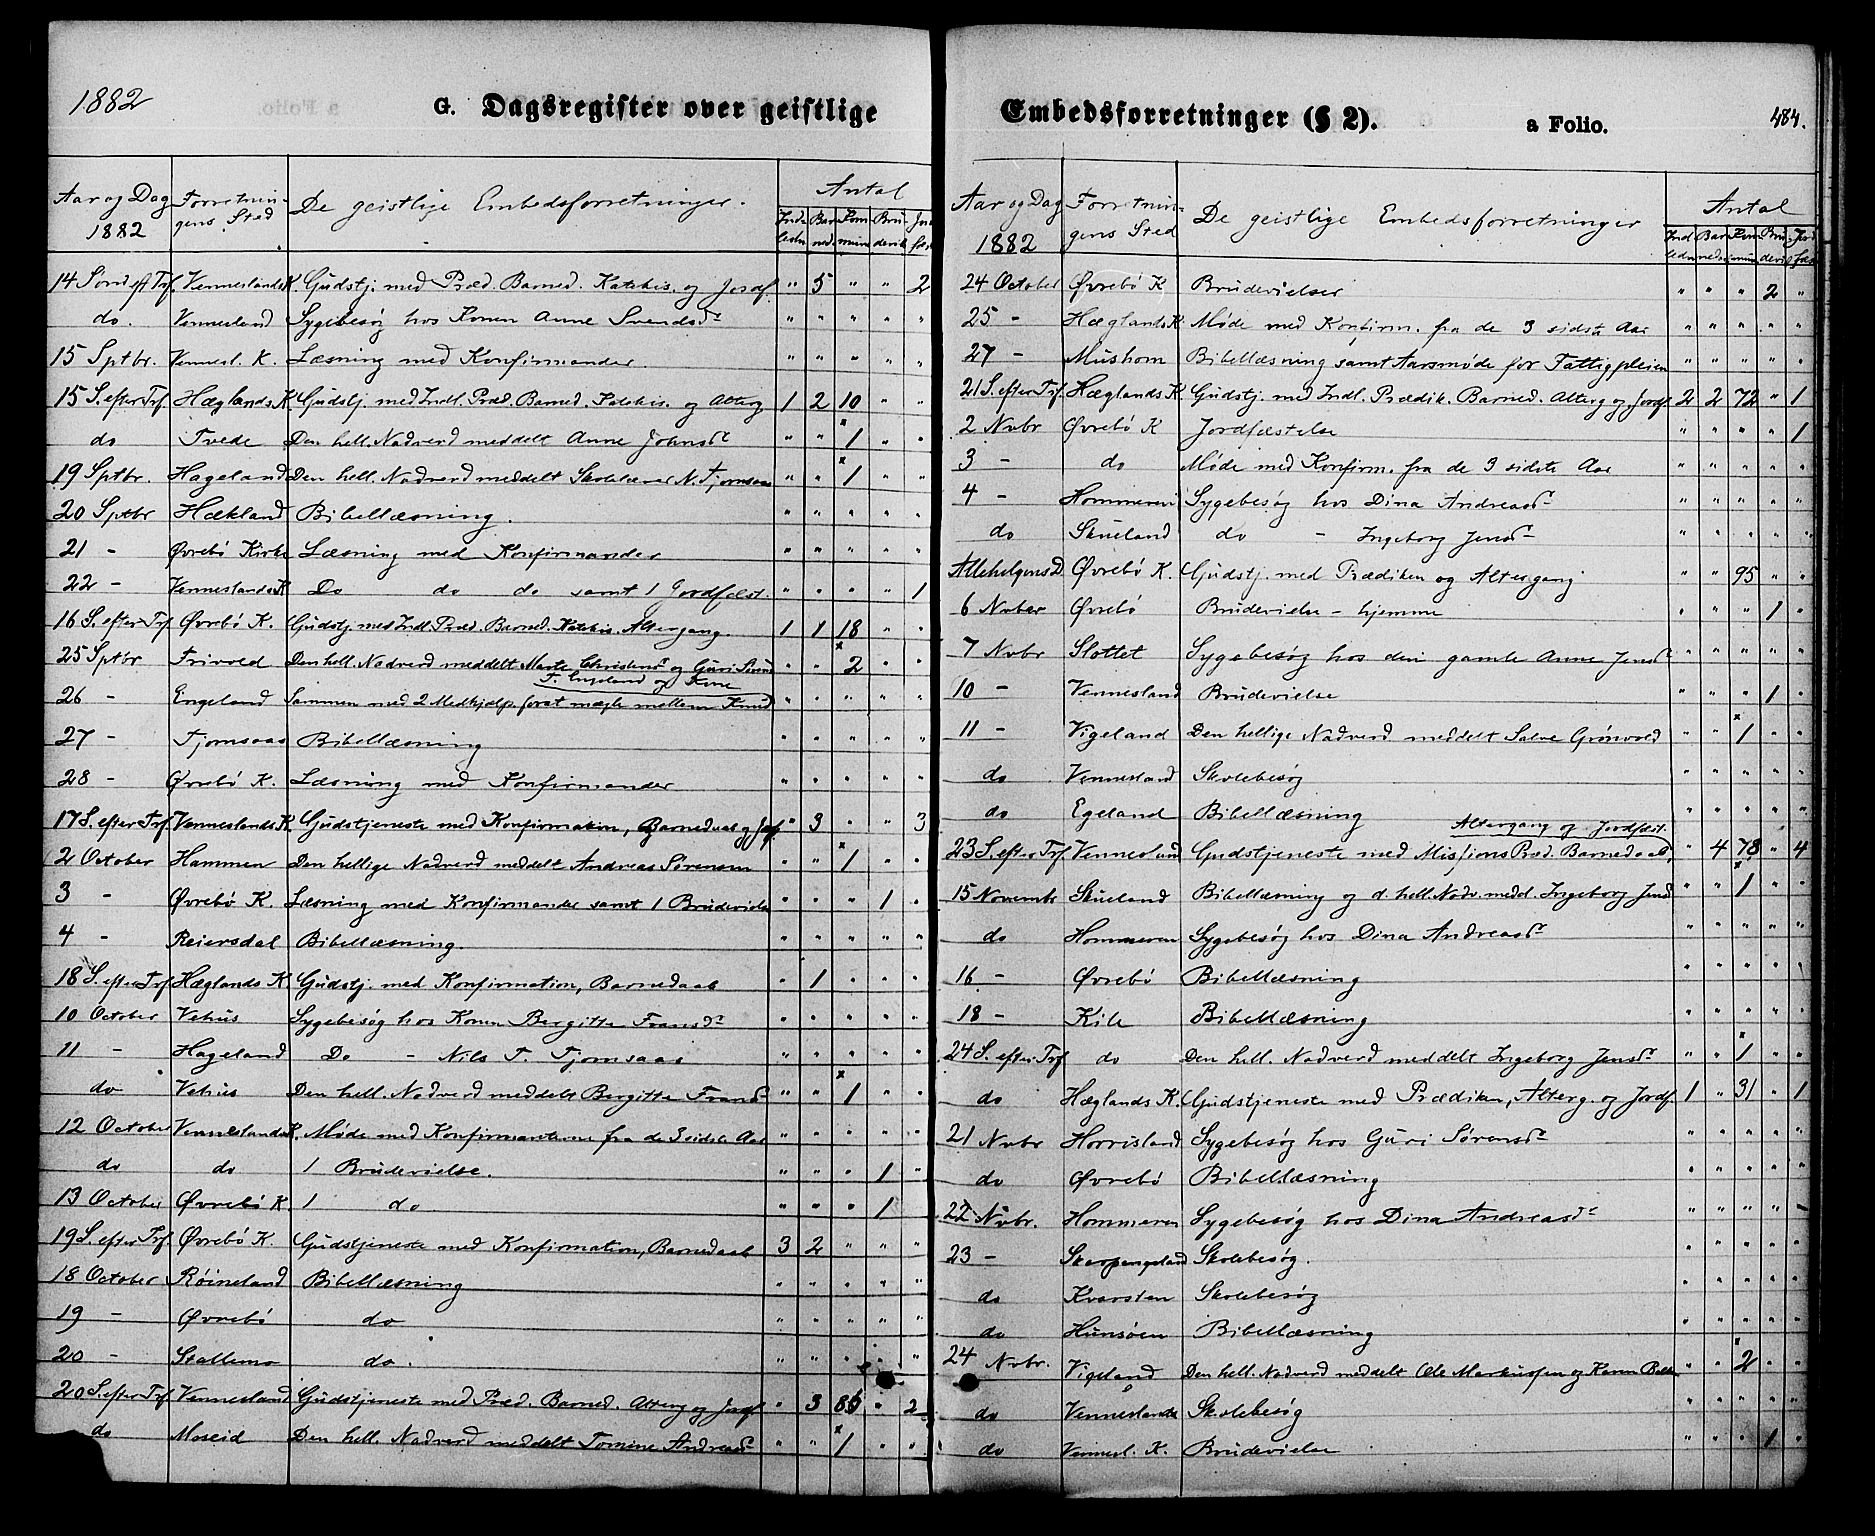 1882
G. Dagsregister over geistlige
Aar og Dag 1882 Forretningens Sted De geistlige Embedsforretninger. Antal
Indledn. Barned. Kommun. Brudevii. Jordfæst.
14 Sond eft Trf. Venneslands K. Gudstj. med Præd. Barned. Katekis. og Jordf. " 5 " " 2
do. Vennesland Sygebesøg hos Konen Anne Svendsd. " " " " "
15 Sptbr. Vennesl. K. Læsning med Konfirmander. " " " " "
15 S. efter Trf. Hæglands K. Gudstj. med Indl. Præd. Barned. Katekis. og Alterg 1 2 10 " "
do Tvede Den hell. Nadverd meddelt Anne Johnsd. " " x1 " "
19 Sptbr. Hageland Den hell. Nadverd meddelt Skolelærer N. Tjomsaas " " x1 " "
20 Sptbr Hækland Bibellæsning. " " " " "
21 - Øvrebö Kirke Læsning med Konfirmander " " " " "
22 - Venneslands K Do do do samt 1 Jordfæst. " " " " 1
16 S. efter Trf. Øvrebö K. Gudstj. med Indl. Præd. Barned. Katekis. Altergang. 1 1 18 " "
25 Sptbr Frivold Den hell. Nadverd meddelt Marte Christensd. og Guri " " x2 " "
T. Engeland og Kone
26 - Engeland Sammen med 2 Medhjælp. forat mægle mellem Knud " " " " "
27 - Tjomsaas Bibellæsning " " " " "
28 - Øvrebö K. Læsning med Konfirmander " " " " "
17 S. efter Trf. Venneslands K. Gudstjeneste med Konfirmation, Barnedaab og Jordf. " 3 " " 3
2 October Hammen Den hellige Nadverd meddelt Andreas Sørensen " " x1 " "
3 - Øvrebö K. Læsning med Konfirmander samt 1 Brudevielse " " " 1 "
4 - Reiersdal Bibellæsning. " " " " "
18 S. efter Trf Hæglands K Gudstj. med Konfirmation, Barnedaab " 1 " " "
10 October Vehus Sygebesøg hos Konen Bergitte Fransd. " " " " "
11 - Hageland Do - Nils T. Tjomsaas " " " " "
do Vehus Den hell. Nadverd meddelt Bergitte Fransd " " x1 " "
12 October Venneslands K. Møde med Konfirmanterne fra de 3 sidste Aar " " " " "
do do 1 Brudevielse. " " " 1 "
13 October Øvrebö K. 1 do " " " 1 "
19 S. efter Trf. Øvrebö K. Gudstjeneste med Konfirmation, Barnedaab 3 2 " " "
18 October Röineland Bibellæsning " " " " "
19 - Øvrebö do " " " " "
20 - Stallemo do. " " " " "
20 S. efter Trf Vennesland Gudstjeneste med Præd. Barned. Alterg og Jordf " 3 86 " 2
do Moseid Den hell. Nadverd meddelt Tomine Andreasd " " x1 " "
Embedsforretninger (§ 2).
a Folio.
484.
Aar og Dag 1882 Forretningens Sted De geistlige Embedsforretninger Antal
24 October Øvrebö K Brudevielser " " " 2 "
25 - Hæglands K Møde med Konfirm. fra de 3 sidste Aar " " " " "
27 - Mushom Bibellæsning samt Aarsmøde for Fattigpleien " " " " "
21 S. efter Trf. Hæglands K. Gudstj. med Indl. Prædik. Barned. Alterg og Jordf 2 2 72 " 1
2 Nvbr Øvrebö K Jordfæstelse " " " " 1
3 - do Møde med Konfirm. fra de 3 sidste Aar " " " " "
4 - Hommeren Sygebesøg hos Dina Andreasd. " " " " "
do Skueland do - Ingeborg Jensd. " " " " "
AllehelgensD Øvrebö K. Gudstj. med Prædiken og Altergang " " 95 " "
6 Nvber Øvrebö Brudevielse - hjemme " " " 1 "
7 Nvbr Slottet Sygebesøg hos den gamle Anne Jensd. " " " " "
10 - Vennesland Brudevielse " " " 1 "
11 - Vigeland Den hellige Nadverd meddelt Salve Grönvold " " x1 " "
do Vennesland Skolebesøg " " " " "
do Egeland Bibellæsning " " " " "
Altergang og Jordfæst.
23 S. efter Trf. Vennesland Gudstjeneste med Missions Præd. Barnedaab, " 4 78 " 4
15 Novembr Skueland Bibellæsning og d. hell. Nadv. medd. Ingeborg Jensd " " x1 " "
do Hommeren Sygebesøg hos Dina Andreasd. " " " " "
16 - Øvrebö Bibellæsning " " " " "
18 - Kile Bibellæsning " " " " "
24 S. efter Trf do Den hell. Nadverd meddelt Ingeborg Jensd. " " x1 " "
do Hæglands K. Gudstjeneste med Prædiken, Alterg. og Jordf. 1 " 31 " 1
21 Nvbr Horrisland Sygebesøg hos Guri Sørensd. " " " " "
do Øvrebö Bibellæsning " " " " "
22 Nvbr. Hommeren Sygebesøg hos Dina Andreasd. " " " " "
23 - Skarpengeland Skolebesøg. " " " " "
do Kvarsten Skolebesøg " " " " "
do Hunsöen Bibellæsning " " " " "
24 Nvbr. Vigeland Den hell. Nadverd meddelt Ole Markussen og Karen " " x2 " "
do Vennesland Skolebesøg " " " " "
do Vennesl. K. Brudevielse " " " 1 "